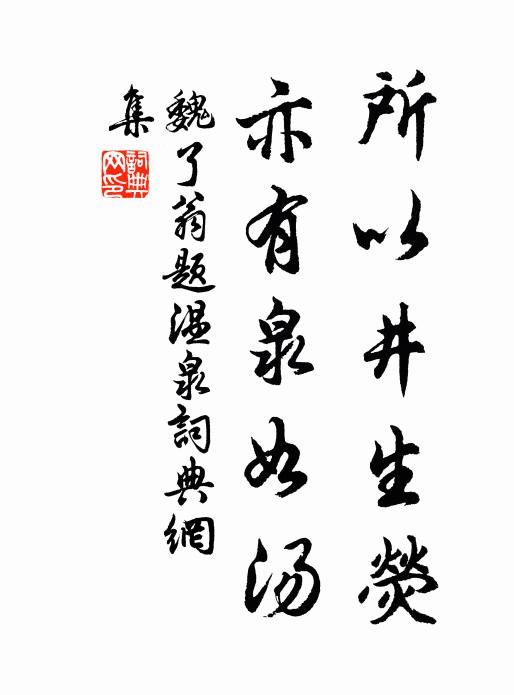 所以井生熒
亦有泉如汤
魏了翁题温泉詞典網
集
詞典网印